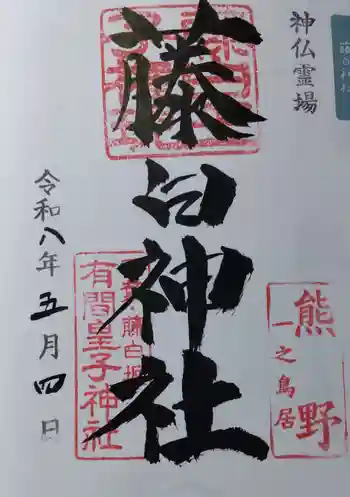 神仏霊場
藤白神社
令和八年五月四日
熊野
一之鳥居
有間皇子神社